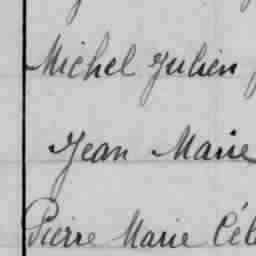 Michel Julien
Jean Marie
Pierre Marie Cél